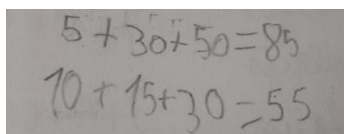 5 + 30 + 50 = 85
10 + 15 + 30 = 55